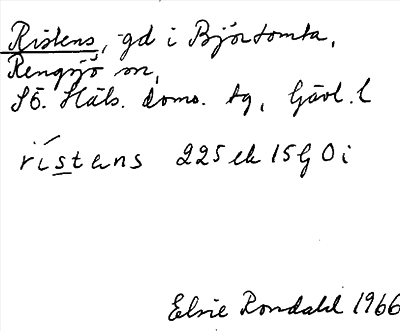 Ristens, gd i Björtomta,
Rengsjö sn,
SÖ. Häls. doms. tg, Gävl. l
rístens 225 ek 15G 0i
Elsie Rondahl 1966